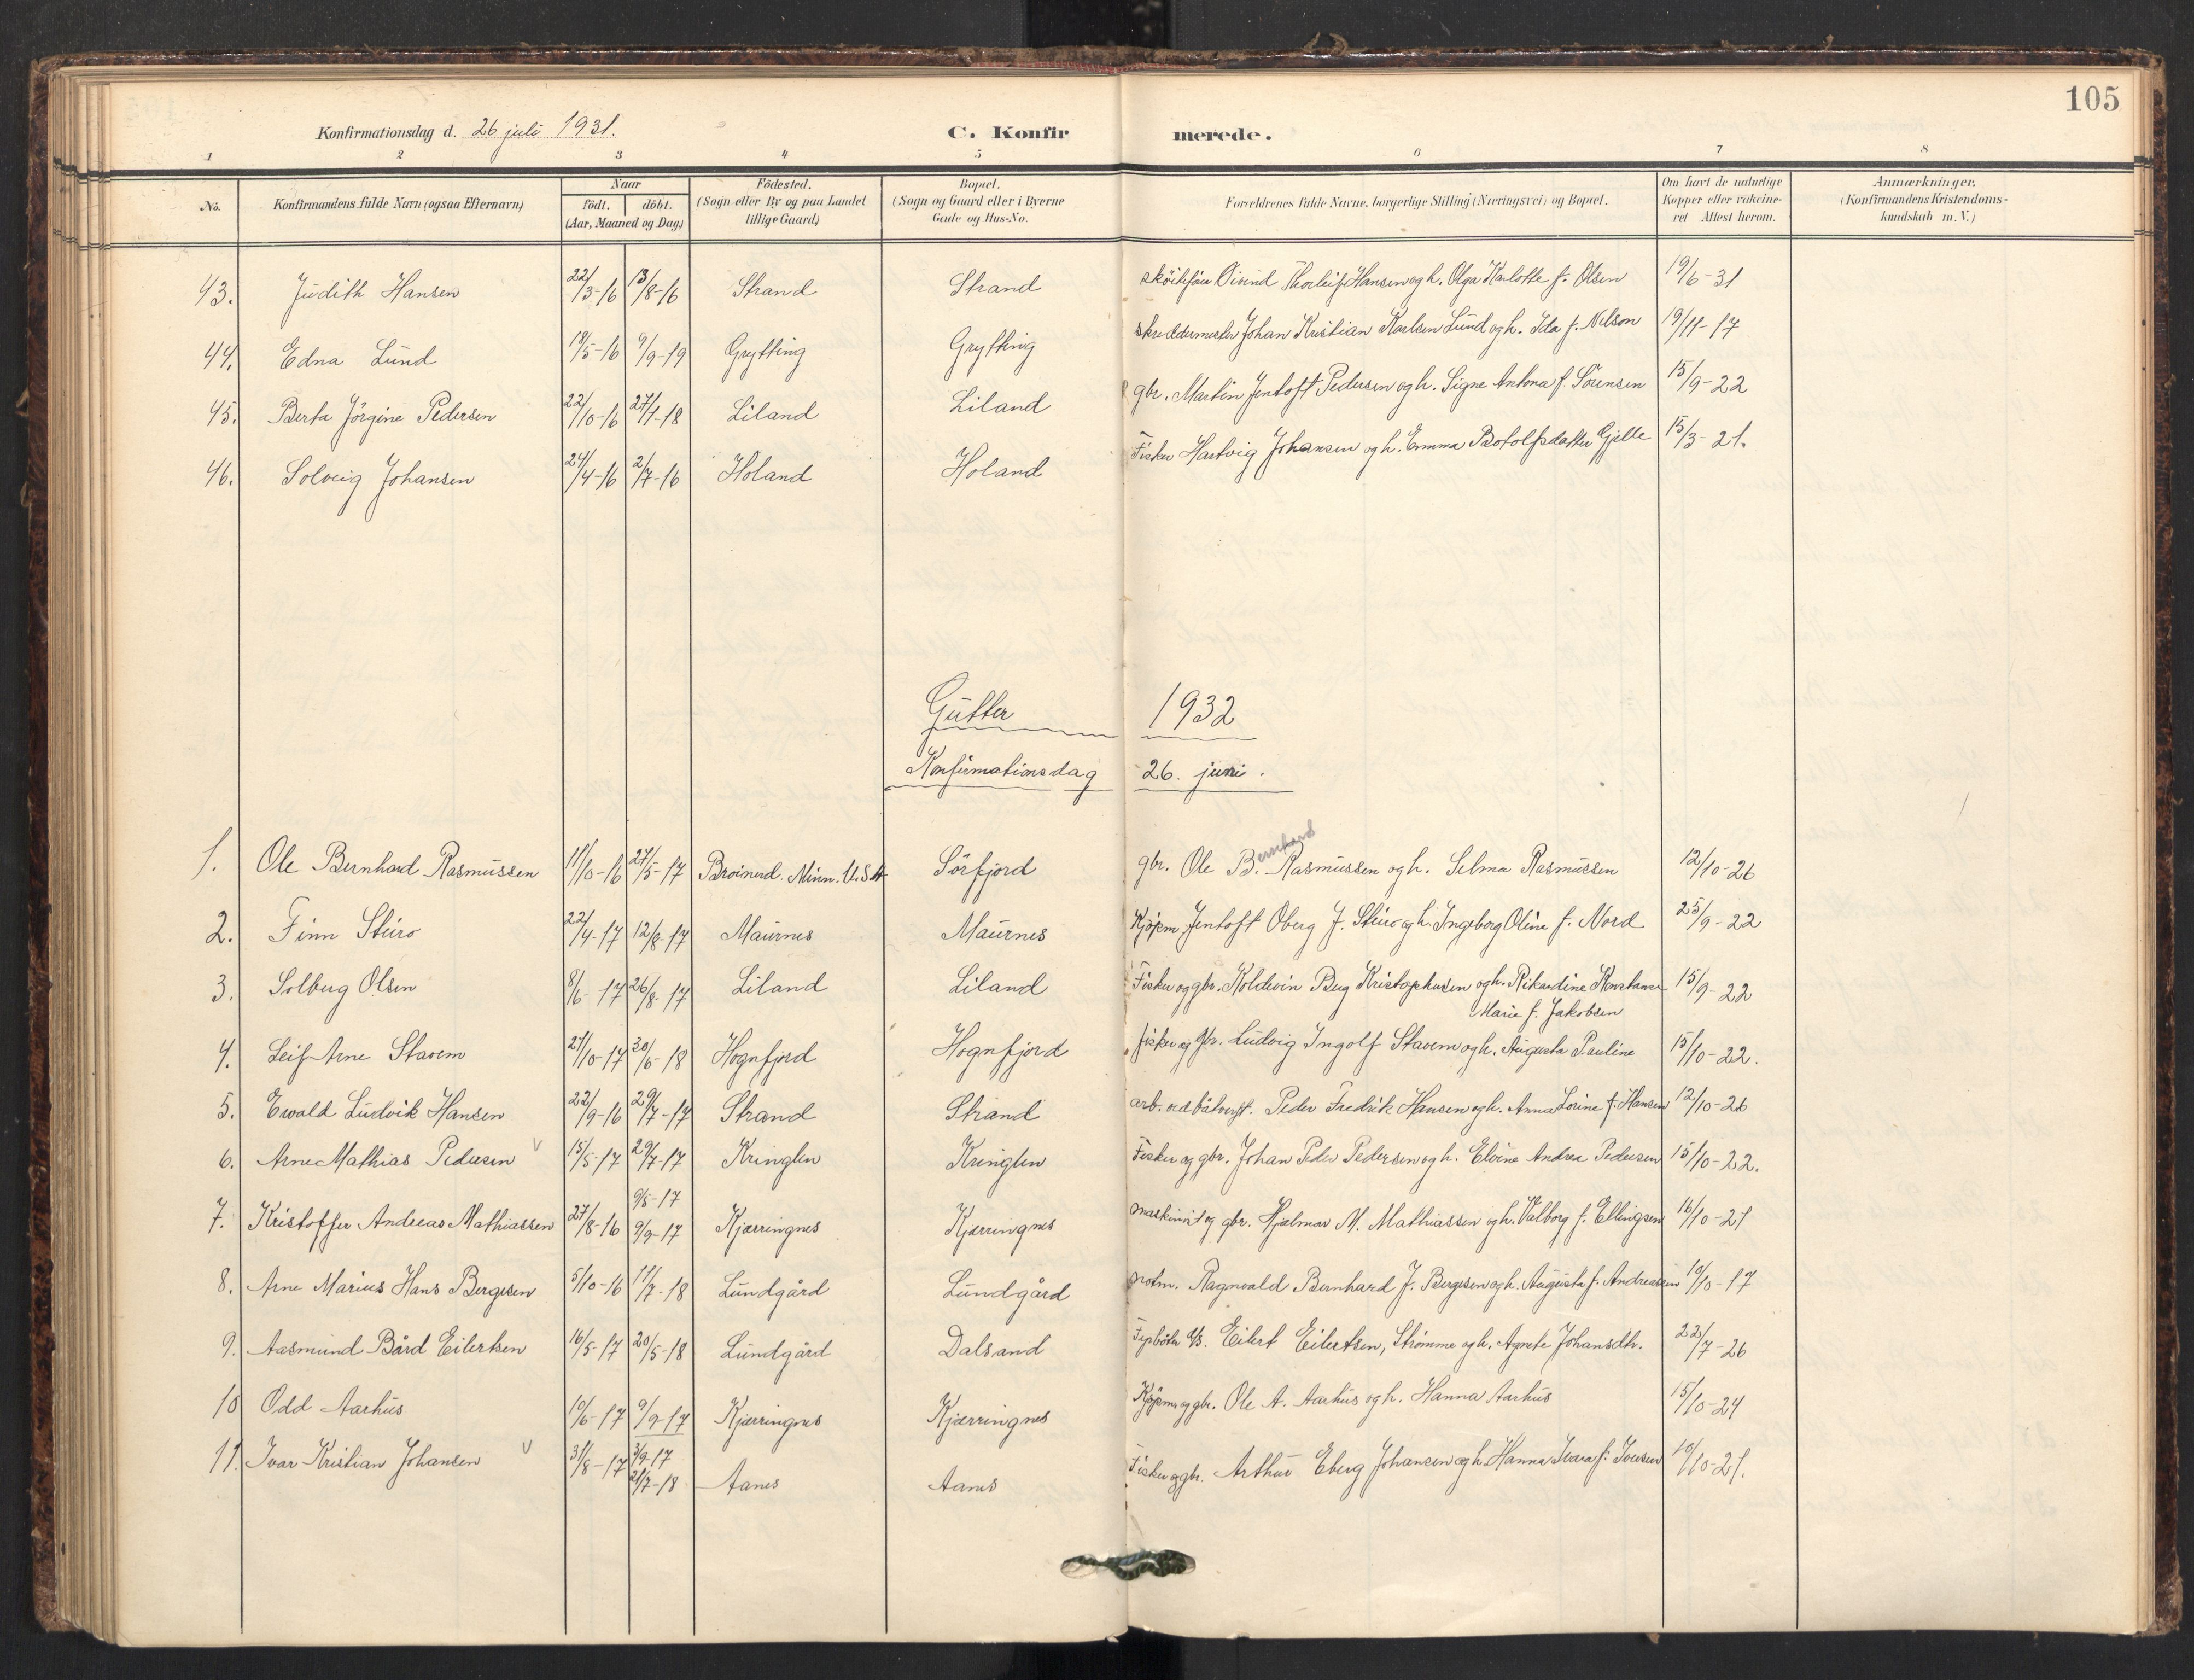 105
Konfirmationsdag d. 26 juli 1931. C. Konfirmerede.
1 2 3 4 5 6 7 8
No. Konfirmandens fulde Navn (ogsaa Efternavn) Naar födt. döbt. (Aar, Maaned og Dag.) Födested. (Sogn eller By og paa Landet tillige Gaard) Bopæl. (Sogn og Gaard eller i Byerne Gade og Hus-No. Forældrenes fulde Navne, borgerlige Stilling (Næringsvei) og Bopæl. Om havt de naturlige Kopper eller vakcineret Attest herom. Anmærkninger. (Konfirmandens Kristendomskundskab m. V.)
43. Judith Hansen 22/3-16 13/8-16 Strand Strand Øivind Thorleif Hansen og h. Olga Karlotte f. Olsen 19/6-31
44. Edna Lund 18/5-16 9/9-19 Grytting Grytting skreddermester Johan Kristian Karlsen Lund og h. Ida f. Nilson 19/11-17
45. Berta Jörgine Pedersen 22/10-16 27/1-18 Liland Liland gbr. Martin Jentoft Pedersen og h. Signe Antona f. Sörensen 15/9-22
46. Solveig Johansen 24/4-16 2/7-16 Holand Holand Fisker Hartvig Johansen og h. Emma Botolfsdatter Gjelle 15/3-21.
Gutter 1932
Konfirmationsdag 26. juni.
1. Ole Bernhard Rasmussen 11/10-16 27/5-17 Broinerd. Minn. U.S.A Sörfjord gbr. Ole B. ernhard Rasmussen og h. Selma Rasmussen 12/10-26
2. Finn Sturo 22/4-17 12/8-17 Maurnes Maurnes Kjøpm. Jentoft Oberg J. Sturo og h. Ingeborg Oline f. Nord 25/9-22
3. Solberg Olsen 8/6-17 26/8-17 Liland Liland Fisker og gbr. Koldevin Berg Kristophersen og h. Rikardine Konstanse Marie f. Jakobsen 15/9-22
4. Leif Arne Stavem 21/10-17 30/6-18 Hognfjord Hognfjord fisker og gbr. Ludvig Ingolf Stavem og h. Augusta Pauline 15/10-22.
5. Ewald Ludvik Hansen 22/9-16 29/7-17 Strand Strand arb. ved båtverft. Peder Fredrik Hansen og h. Anna Lorine f. Hansen 12/10-26
6. Arne Mathias Pedersen v 15/5-17 29/7-17 Kringlen Kringlen Fisker og gbr. Johan Peder Pedersen og h. Elvine Andrea Pedersen 15/10-22.
7. Kristoffer Andreas Mathiassen 27/8-16 9/5-17 9/9-17 Kjærringnes Kjærringnes maskinist og gbr. Hjalmar M. Mathiassen og h. Valborg f. Ellingsen 16/10-21
8. Arne Marius Hans Bergesen 5/10-16 11/7-18 Lundgård Lundgård Ragnvald Bernhard J. Bergesen og h. Augusta f. Andreassen 10/10-17
9. Aasmund Bård Eilertsen 16/5-17 20/5-18 Lundgård Dalsand Eilert Eilertsen, Strømme og h. Agnete Johansdtr. 22/7-26
10 Odd Aarhus 10/6-17 9/9-17 Kjærringnes Kjærringnes Kjøpm. og gbr. Ole A. Aarhus og h. Hanna Aarhus 15/10-24
11. Ivar Kristian Johansen v 31/8-17 3/9-17 21/7-18 Aanes Aanes Fisker og gbr. Arthur Eberg Johansen og h. Hanna Ivara f. Iversen 10/10-21.